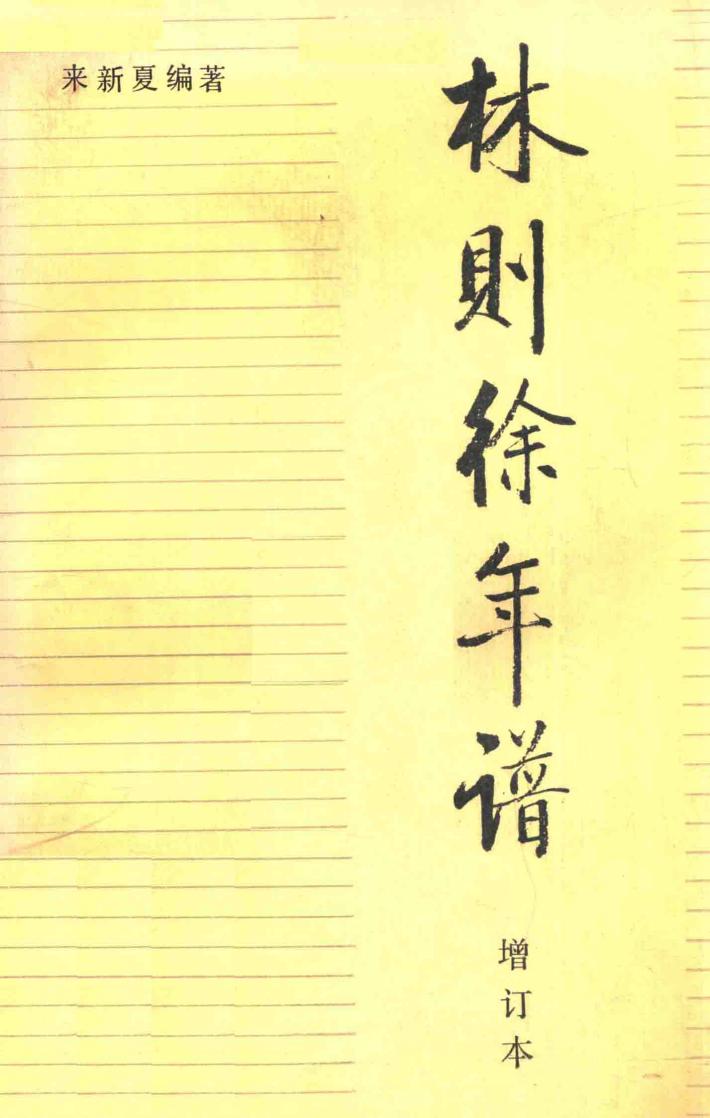 来新夏编著
林则徐年谱
增订本